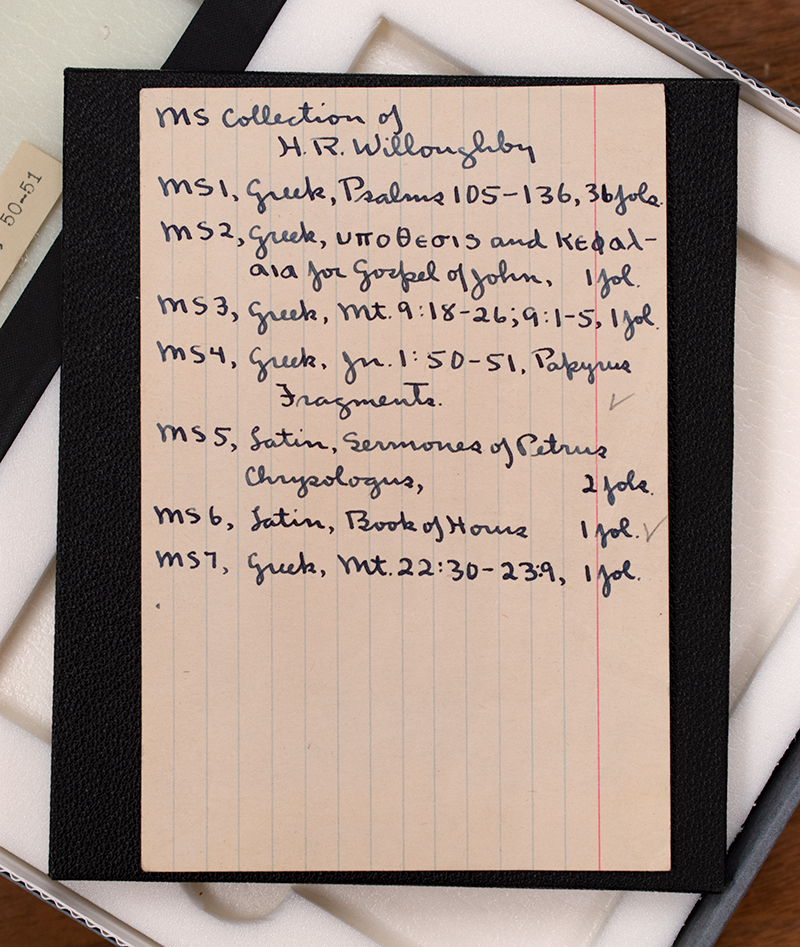 MS Collection of
H. R. Willoughby
MS 1, Greek, Psalms 105-136, 36 fols.
MS 2, Greek, υποθεσις and κεφαλ-
αια for Gospel of John, 1 fol.
MS 3, Greek, Mt. 9:18-26; 9:1-5, 1 fol.
MS 4, Greek, Jn. 1:50-51, Papyrus
Fragments. ✓
MS 5, Latin, Sermones of Petrus
Chrysologus, 2 fols.
MS 6, Latin, Book of Hours 1 fol. ✓
MS 7, Greek, Mt. 22:30-23:9, 1 fol.
, 50-51